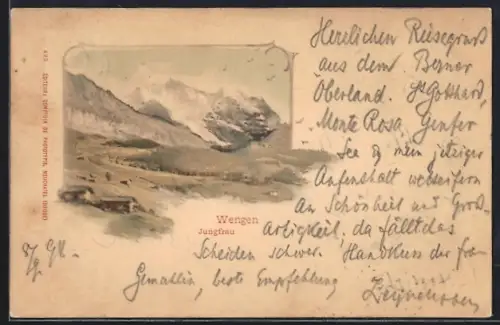 Herzlichen Reisegruß
aus dem Berner
Oberland. St Gotthard,
Monte Rosa, Genfer
See & mein jetziger
Aufenthalt wetteifern
An Schönheit und Groß-
artigkeit, da fällt das
Scheiden schwer. Handkuss der Frau
Gemahlin, beste Empfehlung
Wengen
Jungfrau